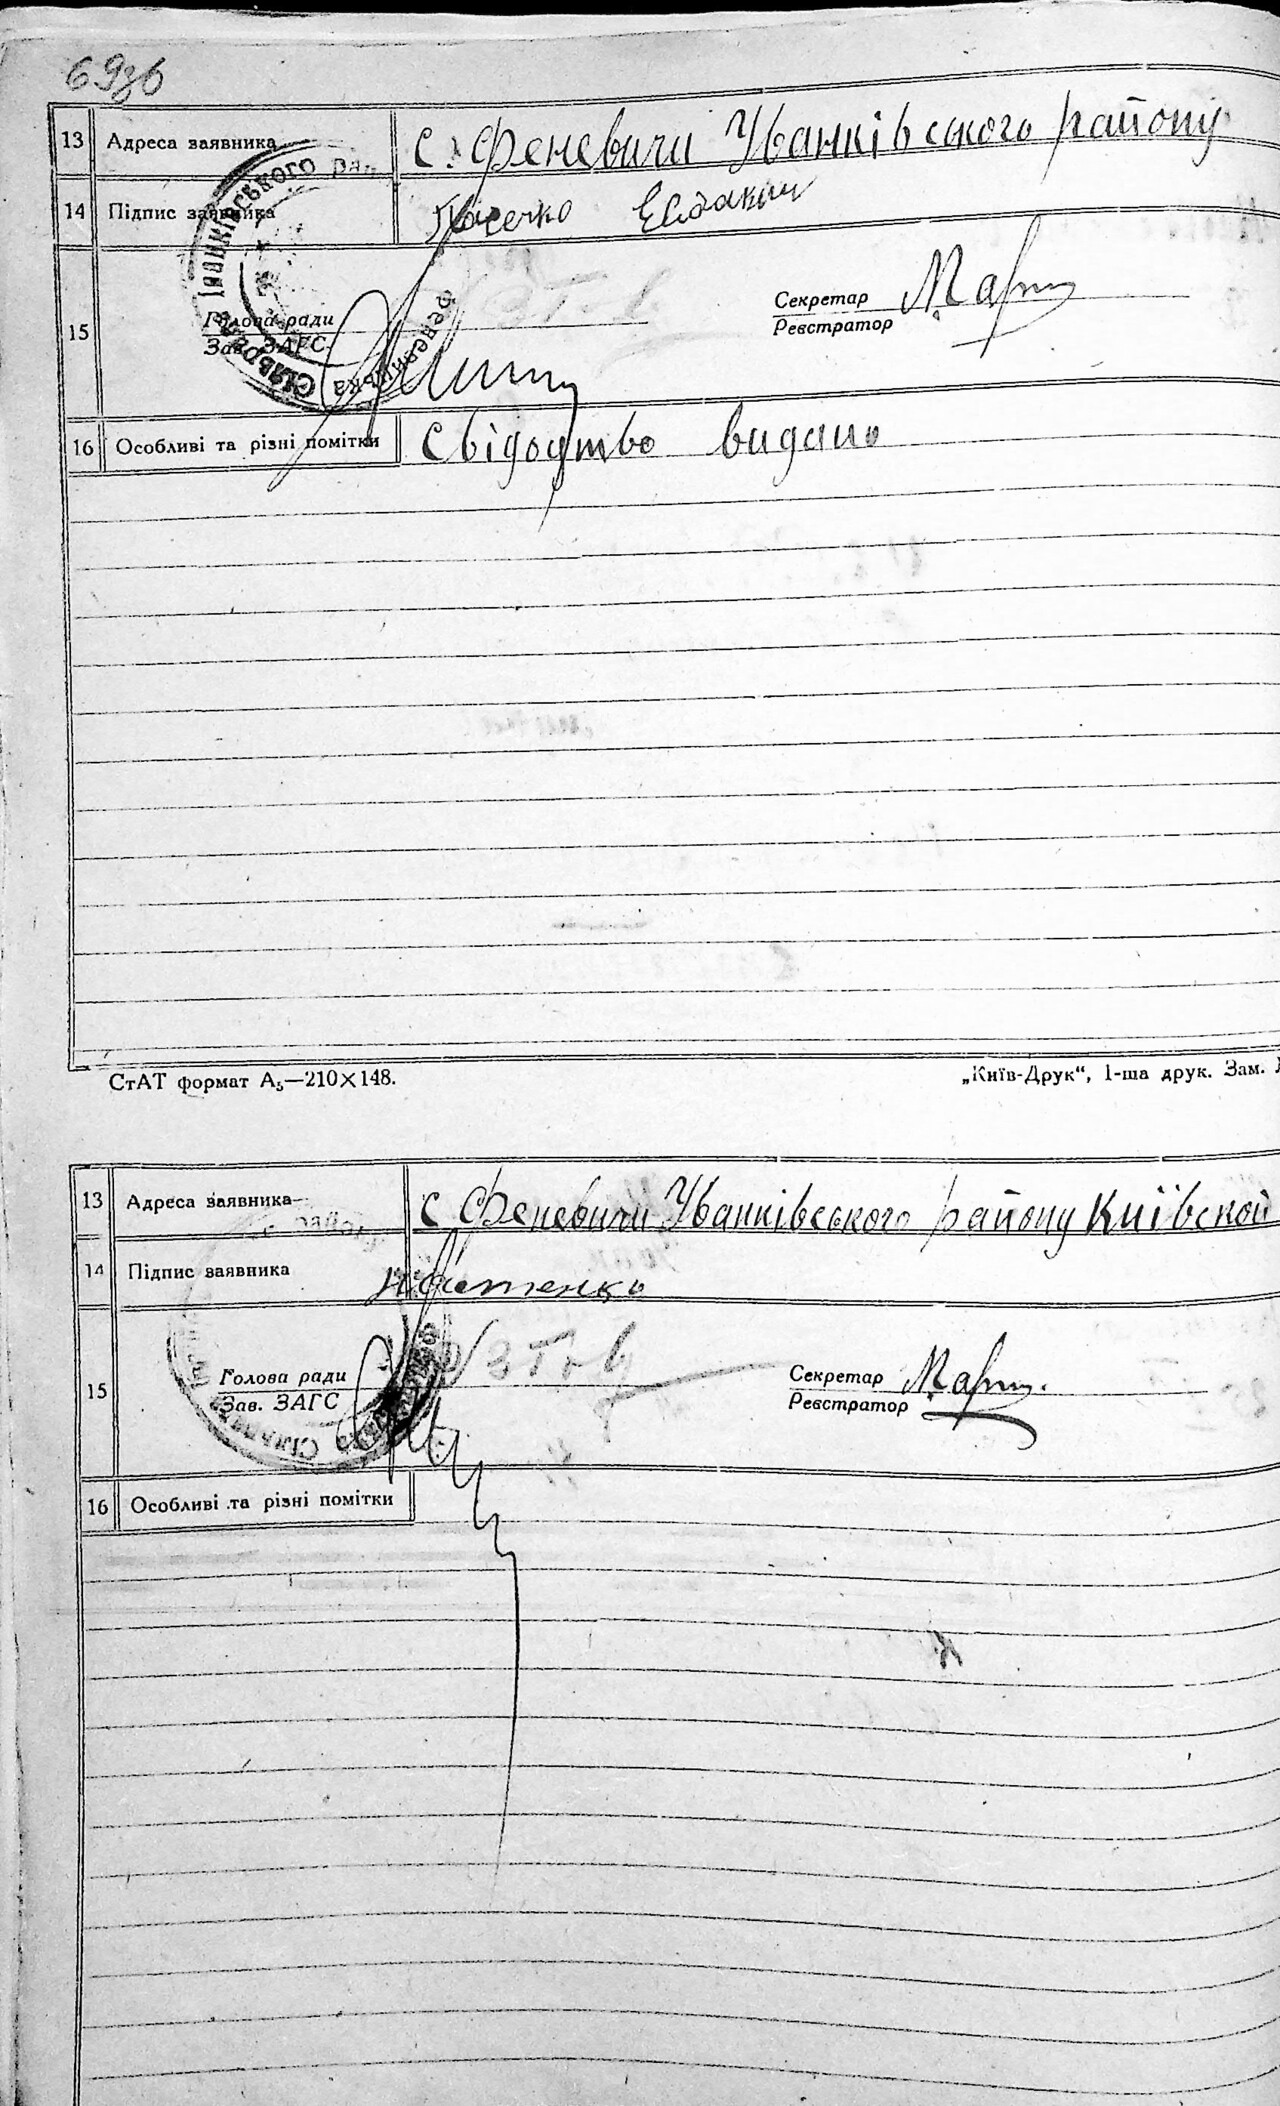 69зв
13 Адреса заявника с. Феневичи Уванківського району
14 Підпис заявника Евдокии
Іванківського
Феневицька
Сільрада
15 Голова ради
Зав. ЗАГС
Секретар
Реєстратор
16 Особливі та різні помітки Свідоцтво видано
СтАТ формат А₅—210×148.
„Київ-Друк“, 1-ша друк. Зам.
13 Адреса заявника с Феневичи Уванківського району Київской
14 Підпис заявника
15 Голова ради
Зав. ЗАГС
Секретар
Реєстратор
16 Особливі та різні помітки